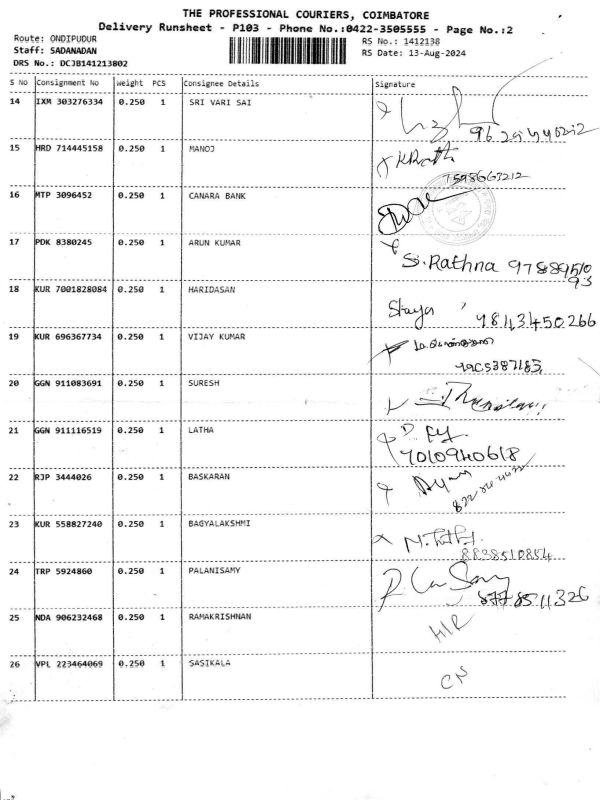 THE PROFESSIONAL COURIERS, COIMBATORE
Delivery Runsheet - P103 - Phone No.:0422-3505555 - Page No.:2
Route: ONDIPUDUR
RS No.: 1412138
Staff: SADANADAN
RS Date: 13-Aug-2024
DRS No.: DCJB141213802
S No Consignment No Weight PCS Consignee Details Signature
14 IXM 303276334 0.250 1 SRI VARI SAI
15 HRD 714445158 0.250 1 MANOJ
7598663212
16 MTP 3096452 0.250 1 CANARA BANK
17 PDK 8380245 0.250 1 ARUN KUMAR
S. Rathna 97889510
93
18 KUR 7001828084 0.250 1 HARIDASAN
9843450266
19 KUR 696367734 0.250 1 VIJAY KUMAR
20 GGN 911083691 0.250 1 SURESH
21 GGN 911116519 0.250 1 LATHA
7010940618
22 RJP 3444026 0.250 1 BASKARAN
23 KUR 558827240 0.250 1 BAGYALAKSHMI
8838510854
24 TRP 5924860 0.250 1 PALANISAMY
8778511326
25 NDA 906232468 0.250 1 RAMAKRISHNAN
H/R
26 VPL 223464069 0.250 1 SASIKALA
CN